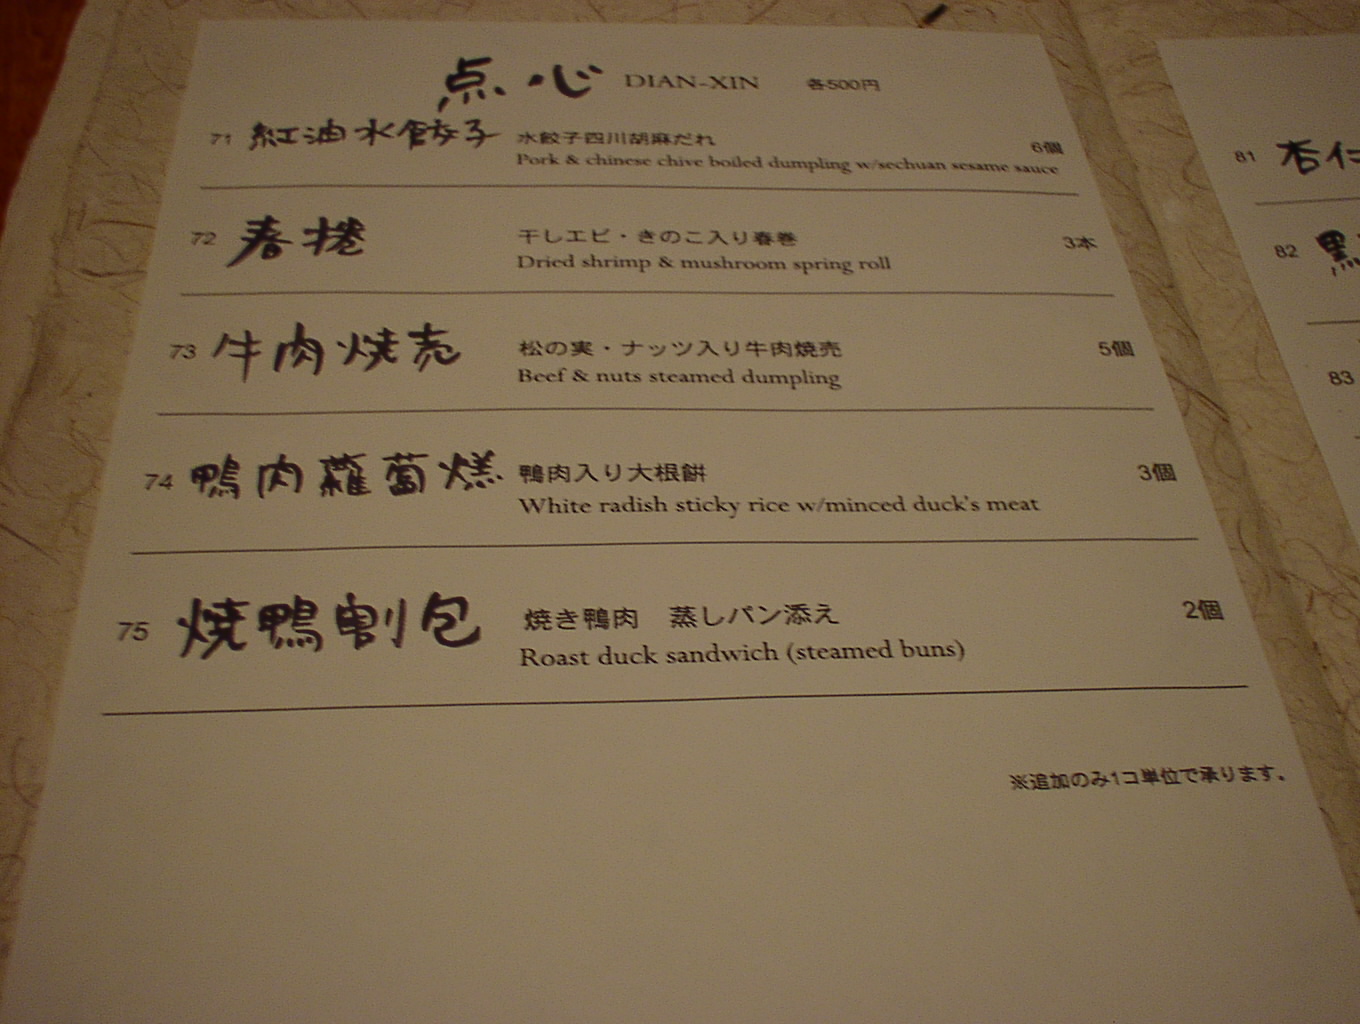 点心 DIAN-XIN 各500円
71 紅油水餃子 水餃子四川胡麻だれ 6個
Pork & chinese chive boiled dumpling w/sechuan sesame sauce
72 春捲 干しエビ・きのこ入り春巻 3本
Dried shrimp & mushroom spring roll
73 牛肉焼売 松の実・ナッツ入り牛肉焼売 5個
Beef & nuts steamed dumpling
74 鴨肉蘿蔔糕 鴨肉入り大根餅 3個
White radish sticky rice w/minced duck's meat
75 焼鴨割包 焼き鴨肉 蒸しパン添え 2個
Roast duck sandwich (steamed buns)
※追加のみ1コ単位で承ります。
81 杏仁
82 黒
83